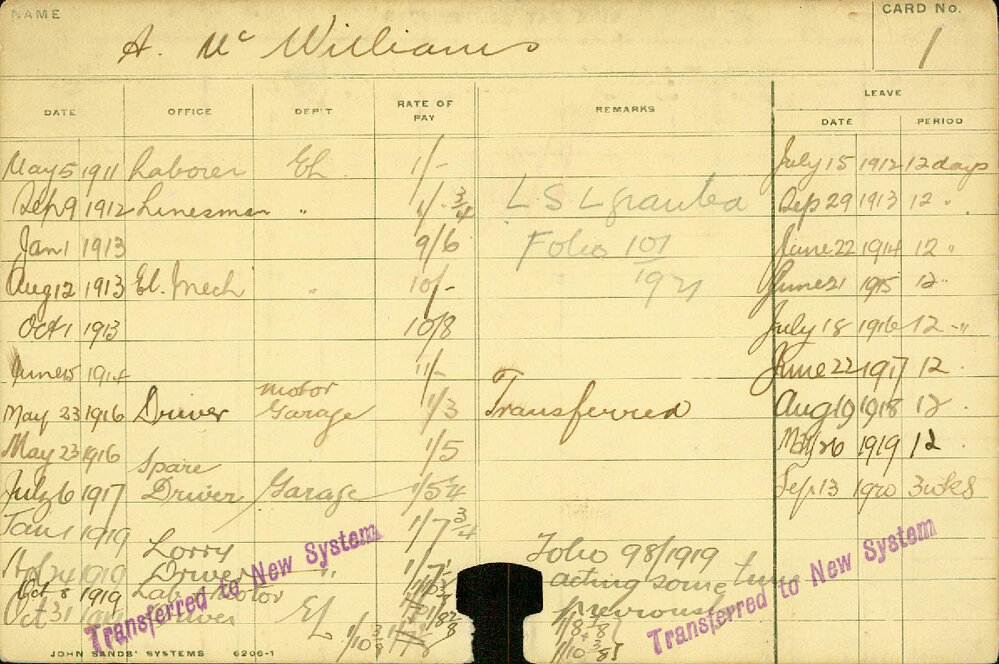 NAME
A. McWilliams
CARD No.
1
DATE OFFICE DEP'T RATE OF PAY REMARKS LEAVE DATE PERIOD
May 5 1911 Laborer El. 1/- July 15 1912 12 days
Sep 9 1912 Linesman " 1/-3/4 L S L granted Sep 29 1913 12 "
Jan 1 1913 9/6 Folio 101 June 22 1914 12 "
Aug 12 1913 El. Mech " 10/- 1921 June 21 1915 12 "
Oct 1 1913 10/8 July 18 1916 12 - "
June 15 1914 11/- June 22 1917 12
May 23 1916 Driver Motor Garage 1/3 Transferred Aug 19 1918 12
May 23 1916 1/5 May 20 1919 12
July 6 1917 Spare Driver Garage 1/5 1/4 Sep 13 1920 3 wks
Jan 1 1919 1/7 3/4
24 1919 Lorry Driver " 1/7 Folio 98/1919
Oct 8 1919 Lab. Motor acting some time
Oct 31 Driver El. previously
1/10 3/8 1/8
Transferred to New System
Transferred to New System
JOHN SANDS' SYSTEMS 6206-1